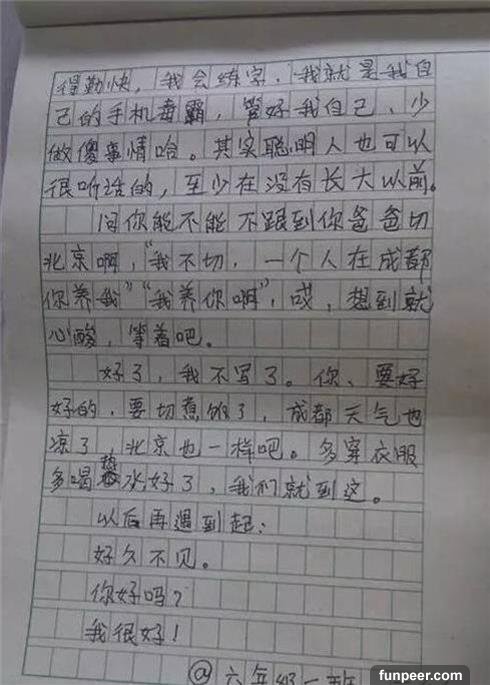 得勤快，我会练字，我就是我自
己的手机毒霸，管好我自己、少
做傻事情哈。其实聪明人也可以
很听话的，至少在没有长大以前。
问你能不能不跟到你爸爸切
北京啊，“我不切，一个人在成都
你养我”“我养你啊”，哎，想到就
心酸，等着吧。
好了，我不写了。你、要好
好的，要切惹了，成都天气也
凉了，北京也一样吧。多穿衣服
多喝热水好了，我们就到这。
以后再遇到起：
好久不见。
你好吗？
我很好！
@六年级一班
funpeer.com